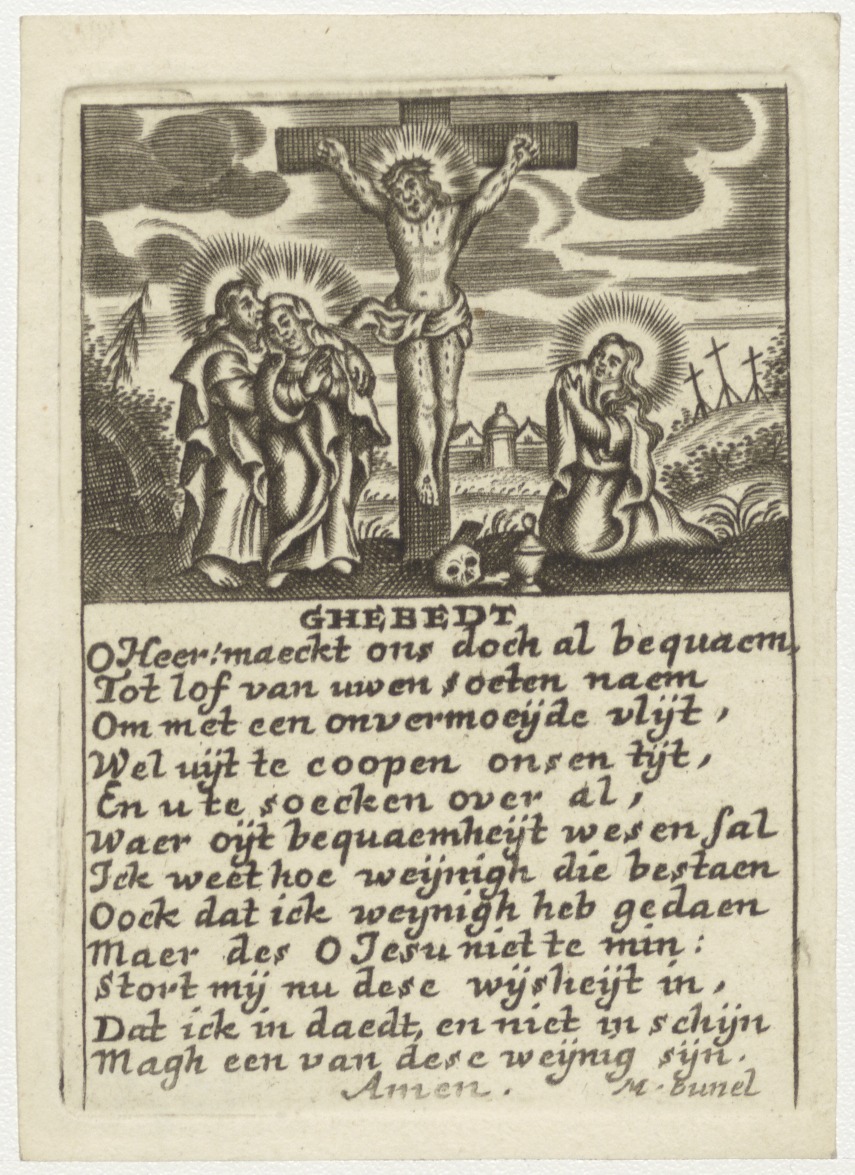 GHEBEDT
O Heer! maeckt ons doch al bequaem,
Tot lof van uwen soeten naem
Om met een onvermoeijde vlijt,
Wel uijt te coopen onsen tijt,
En u te soecken over al,
Waer oijt bequaemheijt wesen sal
Ick weet hoe weijnigh die bestaen
Oock dat ick weynigh heb gedaen
Maer des O Jesu niet te min:
Stort mij nu dese wijsheijt in,
Dat ick in daedt, en niet in schijn
Magh een van dese weijnig sijn.
Amen. M. bunel